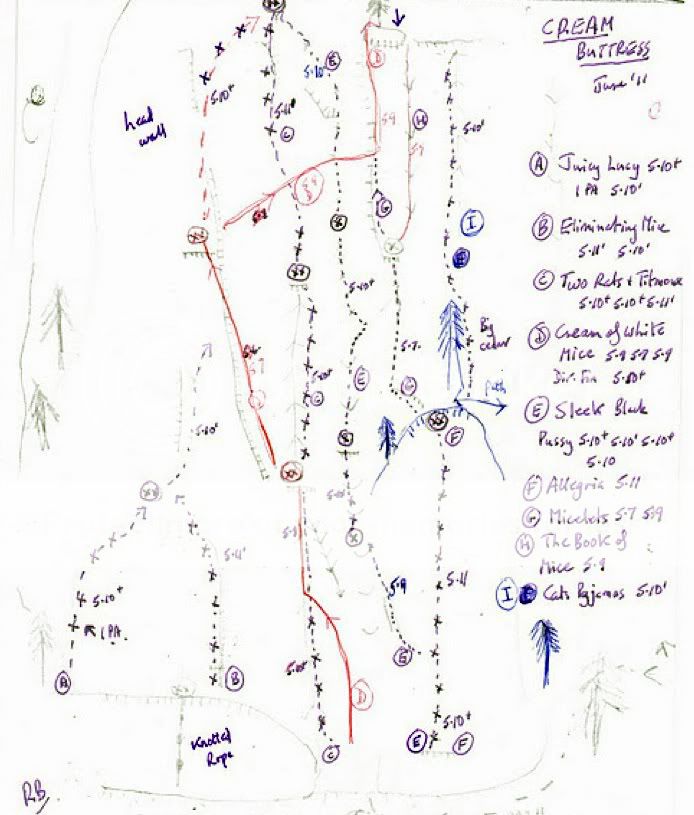 CREAM
BUTTRESS
June '11
(A) Juicy Lucy 5.10+
1PA 5.10'
(B) Eliminating Mice
5.11' 5.10'
(C) Two Rats + Titmouse
5.10+ 5.10+ 5.11'
(D) Cream of White
Mice 5.9 5.7 5.9
Dir. Fin 5.10+
(E) Sleek Black
Pussy 5.10+ 5.10' 5.10+
5.10
(F) Allegria 5.11
(G) Micelets 5.7 5.9
(H) The Book of
Mice 5.9
(I) Cats Pyjamas 5.10'
head
wall
5.10+
5.11+
C
5.10
E
D
5.9
H
5.9
5.10'
5.9
D
G
I
XX
XX
5.7
5.10+
5.7
Big
cedar
path
5.10+
C
E
G
XX
F
XX
5.10'
XX
5.11'
5.10+
1PA.
5.9
5.9
5.11
A
B
5.10+
D
G
5.10+
C
E
F
Knotted
Rope
RB